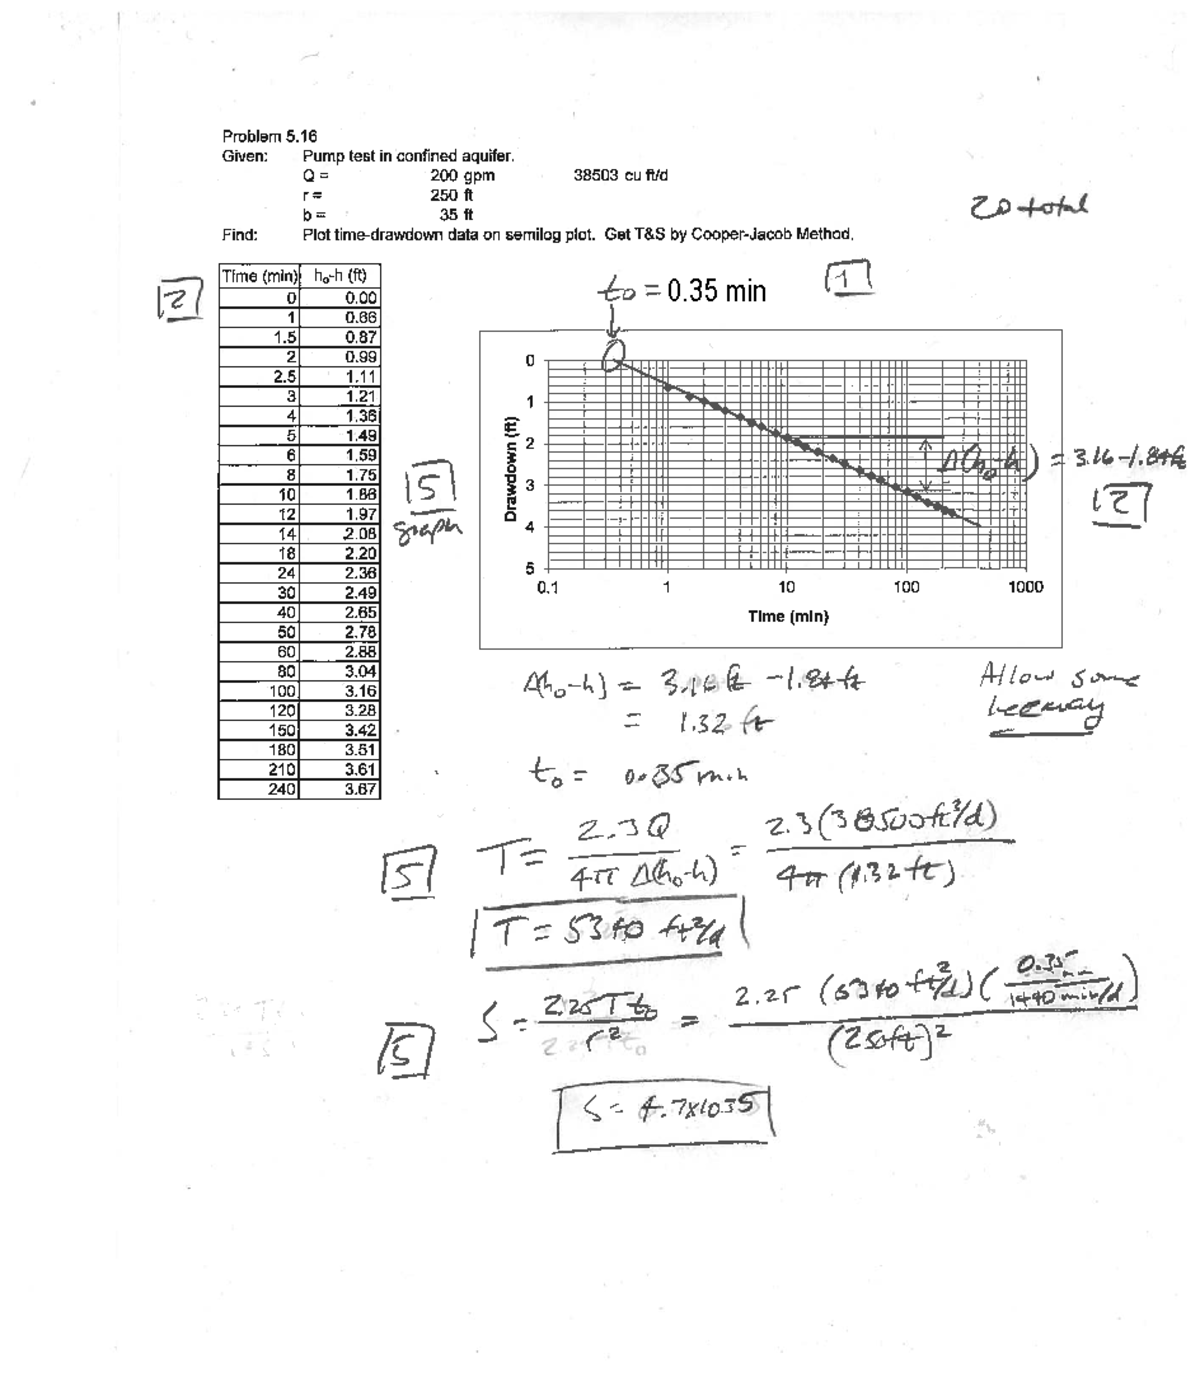 Problem 5.16
Given: Pump test in confined aquifer.
Q = 200 gpm 38503 cu ft/d
r = 250 ft
b = 35 ft
20 total
Find: Plot time-drawdown data on semilog plot. Get T&S by Cooper-Jacob Method.
2
Time (min) h₀-h (ft)
0 0.00
1 0.66
1.5 0.87
2 0.99
2.5 1.11
3 1.21
4 1.36
5 1.49
6 1.59
8 1.75
10 1.86
12 1.97
14 2.08
18 2.20
24 2.36
30 2.49
40 2.65
50 2.78
60 2.88
80 3.04
100 3.16
120 3.28
150 3.42
180 3.51
210 3.61
240 3.67
5
graph
t₀ = 0.35 min
1
Drawdown (ft)
0
1
2
3
4
5
0.1 1 10 100 1000
Time (min)
Δ(h₀-h) = 3.16-1.84 ft
2
Δ(h₀-h) = 3.16 ft - 1.84 ft
= 1.32 ft
Allow some
leeway
t₀ = 0.35 min
5
T = 2.3Q / 4π Δ(h₀-h) = 2.3(38500 ft³/d) / 4π (1.32 ft)
T = 5340 ft²/d
5
S = 2.25T t₀ / r² = 2.25 (5340 ft²/d)(0.35 min / 1440 min/d) / (250ft)²
S = 4.7x10-5